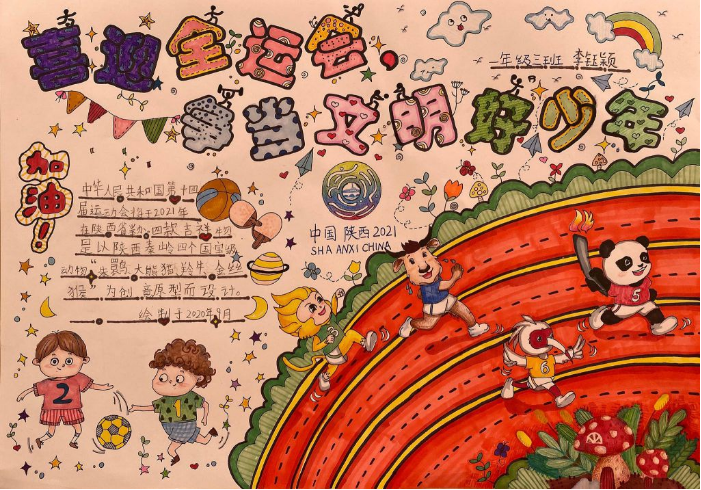 喜迎全运会，
争当文明好少年
一年级三班 李钰颖
加油！
中华人民共和国第十四
届运动会将于2021年
在陕西省 四款吉祥物
是以陕西秦岭四个国宝级
动物“朱鹮、大熊猫、羚牛、金丝
猴”为创意原型而设计。
绘制于2020年9月
中国 陕西2021
SHAANXI CHINA
5
3
6
2
1